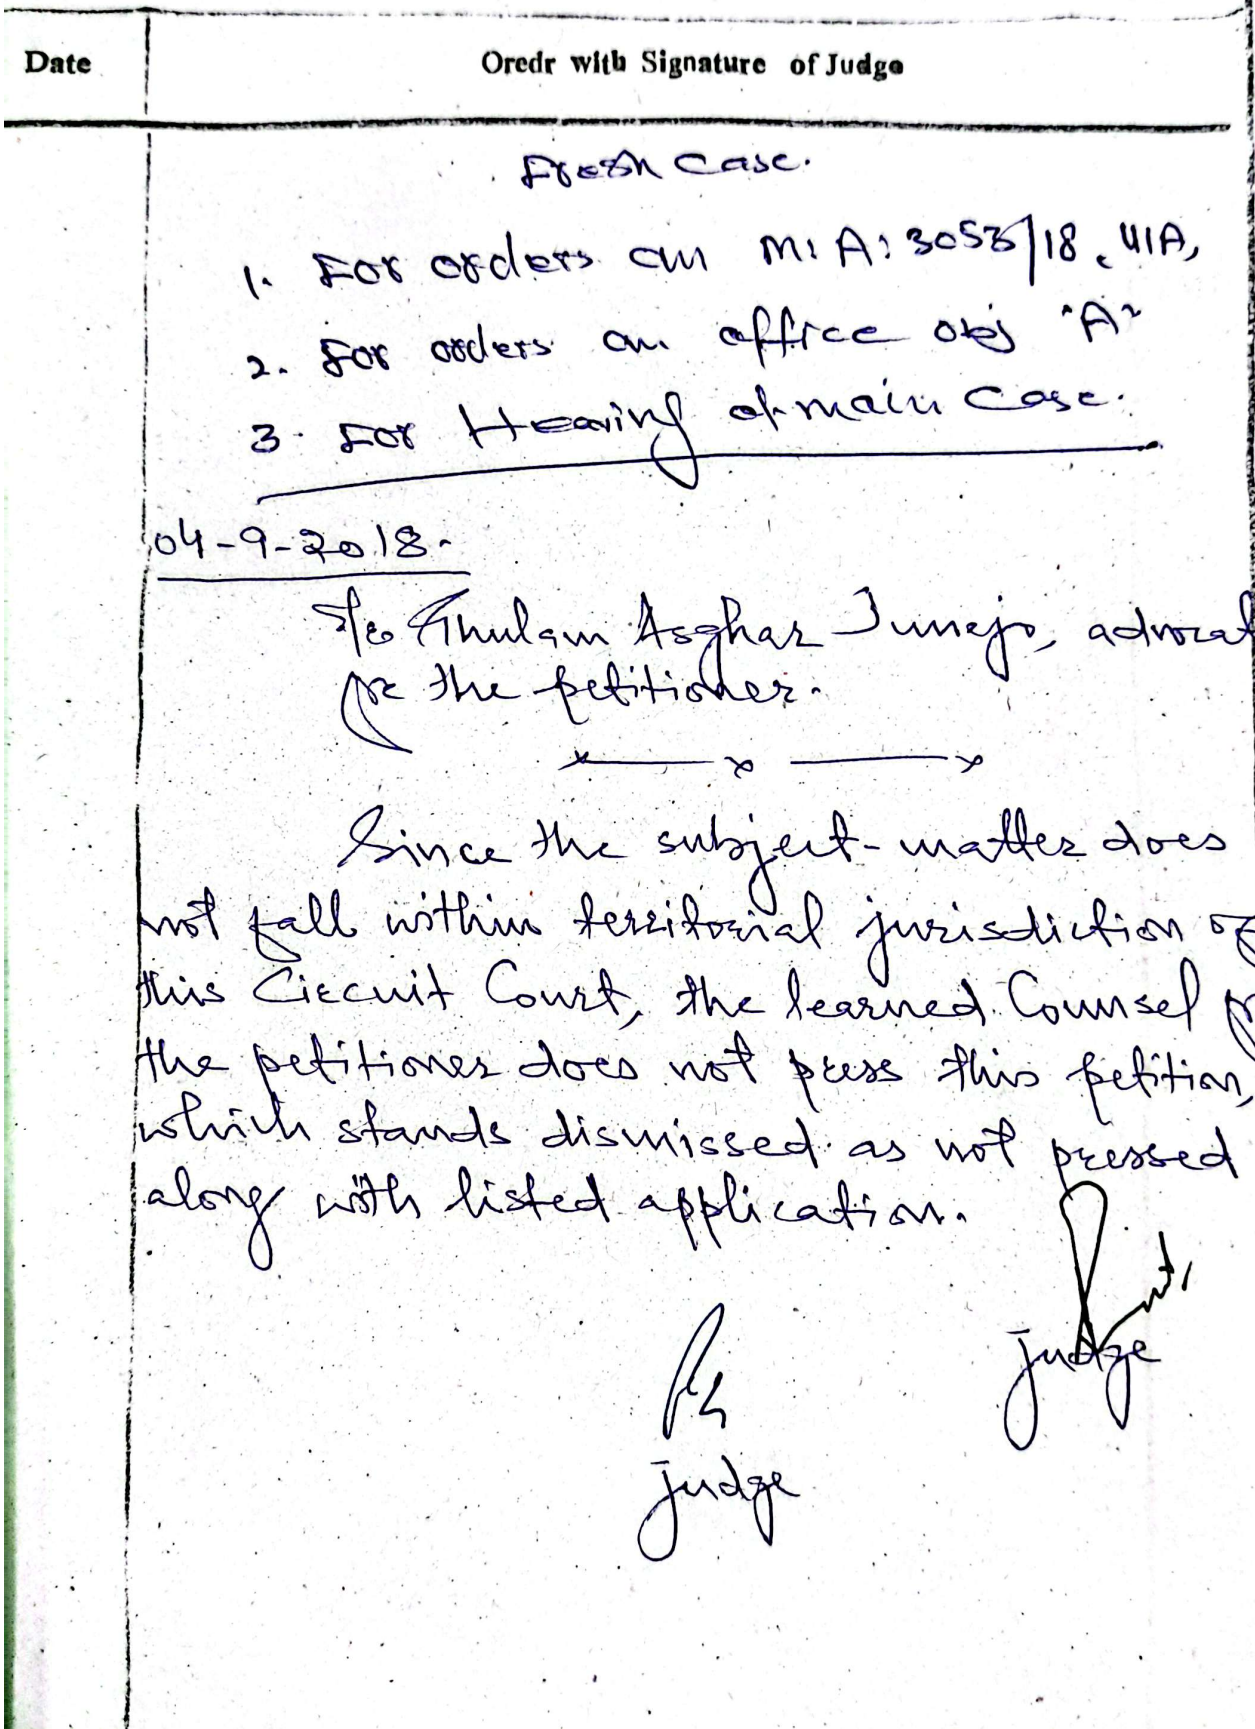 Date
Oredr with Signature of Judge
Fresh Case.
1. For orders on M.A: 3053/18. U/A,
2. For orders on office obj "A"
3. For Hearing of main Case.
04-9-2018.
Ghulam Asghar Junejo, advocat
for the petitioner.
x x x
Since the subject-matter does
not fall within territorial jurisdiction of
this Circuit Court, the learned Counsel
the petitioner does not press this petition,
which stands dismissed as not pressed
along with listed application.
Judge
Judge